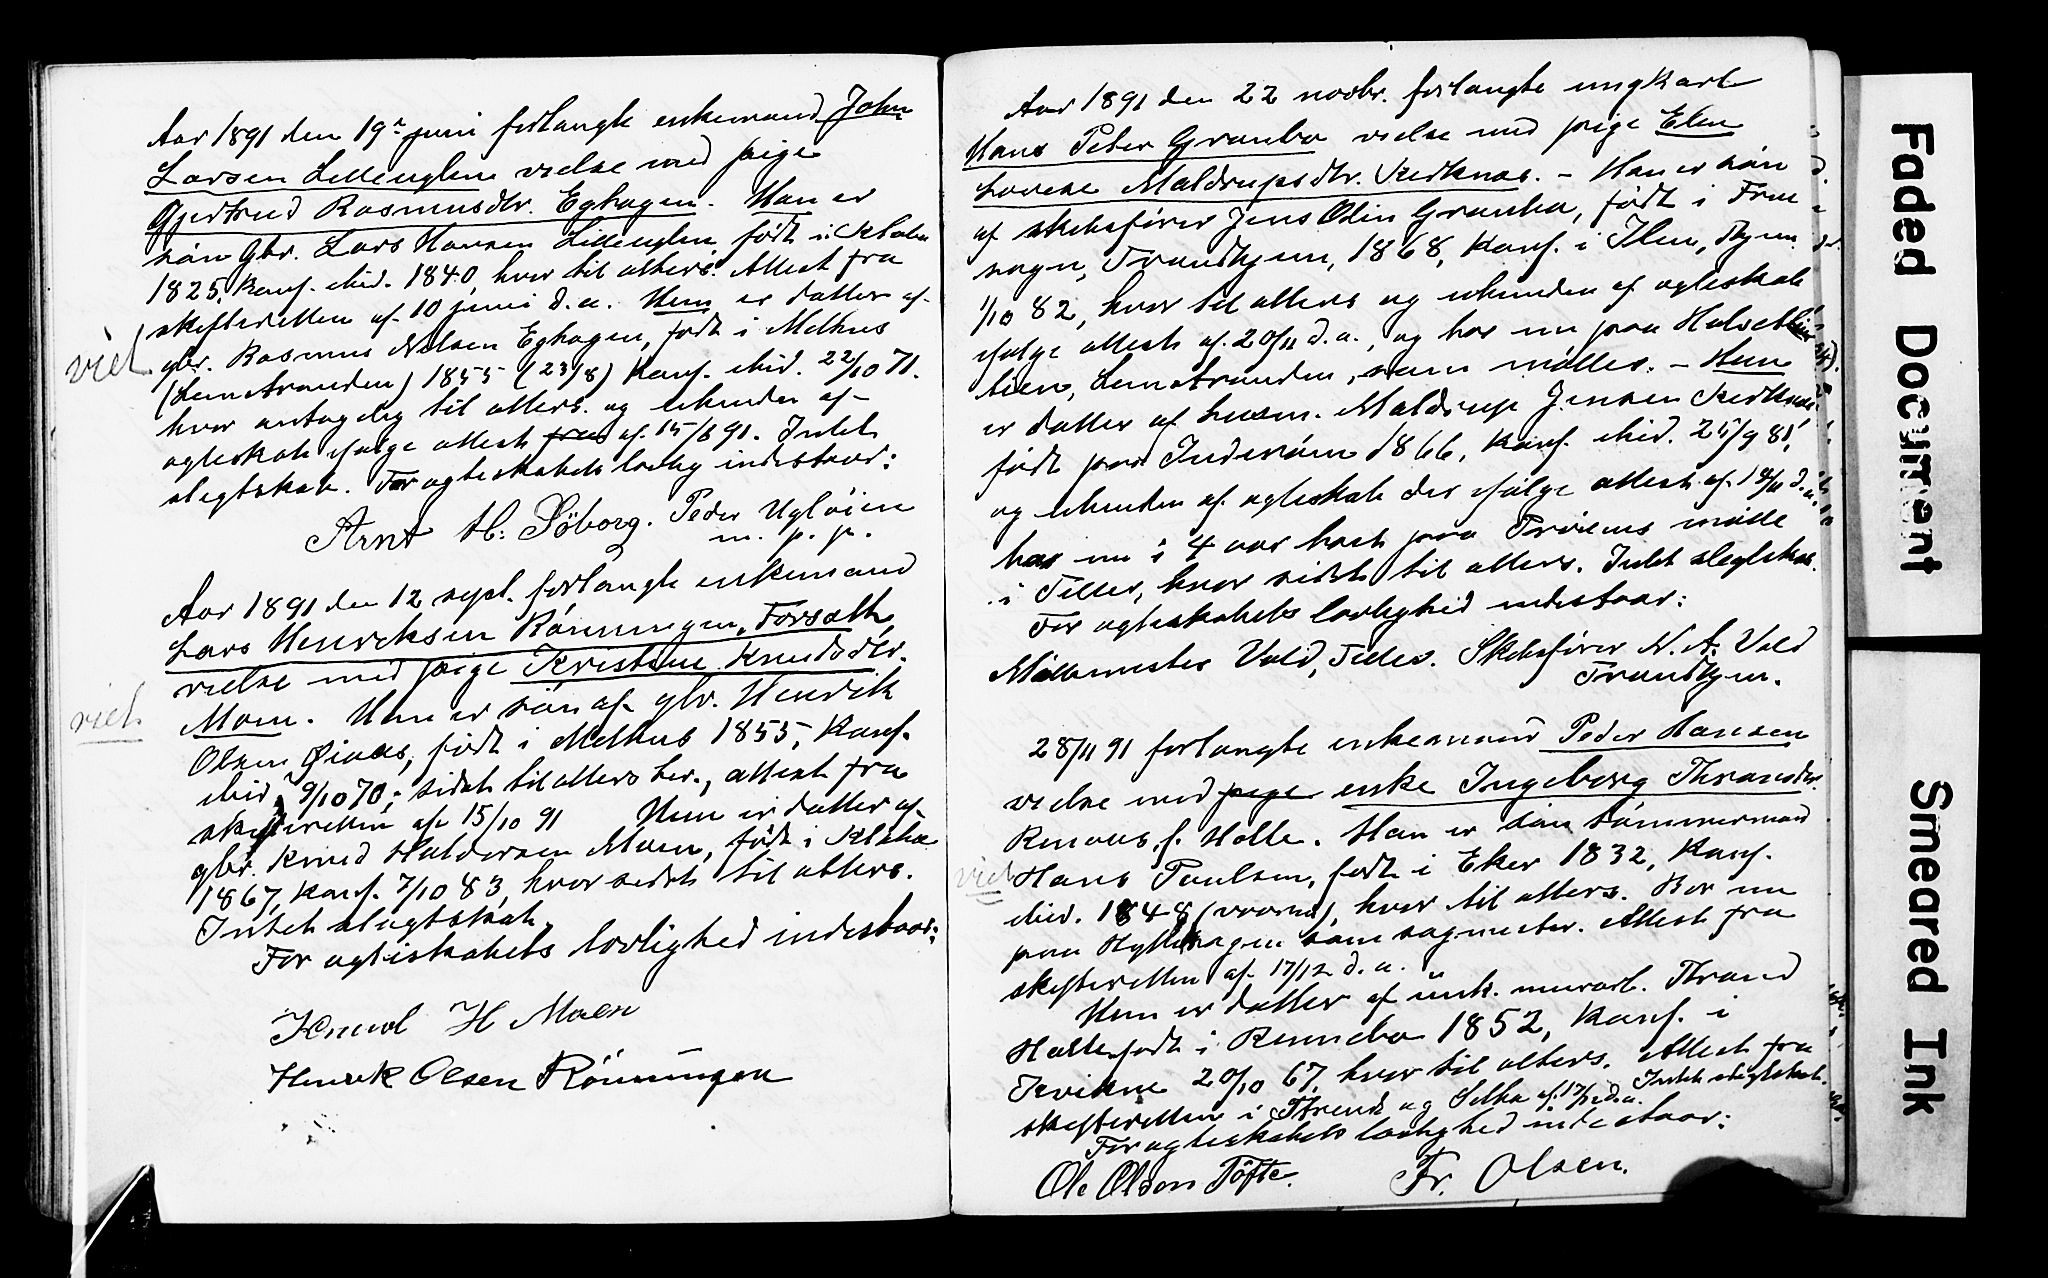 Aar 1891 den 19de juni forlangte enkemand John
Larsen Lilleuglen vielse med pige
Gjertrud Rasmusdtr. Eghagen. Han er
søn gbr. Lars Hansen Lilleuglen, født i Klæbu
1825, konf. ibid. 1840, hvor til alters. Attest fra
skifteretten af 10 juni d. a. Hun er datter af
gbr. Rasmus Nilsen Eghagen, født i Melhus
(Leinstranden) 1855 (23/8) konf. ibid. 22/10 71.
hvor antagelig til alters og ukunden af
ægteskab ifølge attest fra af 15/6 91. Intet
slegtskab. For ægteskabets lovlig indestaar:
Arnt H. Söborg. Peder Ugløien
m. p. p.
viet
Aar 1891 den 12 sept. forlangte enkemand
Lars Henriksen Rønningen, Forsæth,
vielse med pige Kristine Knudsdtr.
Moen. Han er søn af gbr. Henrik
Olsen Øiaas, født i Melhus 1855, konf.
ibid. 9/10 70; sidst til alters her., attest fra
skifteretten af 15/10 91 Hun er datter af
gbr. Knud Haldorsen Moen, født i Klæbu
1867, konf. 7/10 83, hvor sidst til alters.
Intet slegtskab.
For ægteskabets lovlighed indestaar:
Knud H Moen
Henrik Olsen Rönningen
viet
Aar 1891 den 22 novbr. forlangte ungkarl
Hans Peter Granbo vielse med pige Elen
Lovise Maldrupsdtr. Kirknæs. - Han er søn
af skibsfører Jens Odin Granbo, født i Frue
sogn, Trondhjem, 1868, konf. i Ilen,
1/10 82, hvor til alters og ukunden af ægteskab
ifølge attest af 20/11 d. a., og bor nu paa
Leinstranden, som møller. - Hun
er datter af husm. Maldrup Jensen Kirknæs
født paa Inderøen 1866, konf. ibid. 25/9 81,
og ukunden af ægteskab der ifølge attest af 18/11 d. a.
har nu i 4 aar boet paa Trøiens mølle
i Tiller, hvor sidst til alters. Intet slegtskab.
For ægteskabets lovlighed indestaar:
Møllermester Vold, Tiller. Skibsfører N. A. Vold
Trondhjem.
28/11 91 forlangte enkemand Peder Hansen
vielse med pige enke Ingeborg Thrandsdtr.
f. Holte. Han er søn tømmermand
Hans Paulsen, født i Eker 1832, konf.
ibid. 1848 (vaaren), hvor til alters. Bor nu
paa som sagmester. Attest fra
skifteretten af 17/12 d. a.
Hun er datter af murarb. Thrand
Holte født i Rennebo 1852, konf. i
Kvikne 20/10 67, hvor til alters. Attest fra
skifteretten i og Selbu af 17/12 d. a. Intet slegtskab.
For ægteskabets lovlighed indestaar:
Ole Olson Töfte. Fr. Olsen.
viet
Faded Document
Smeared Ink